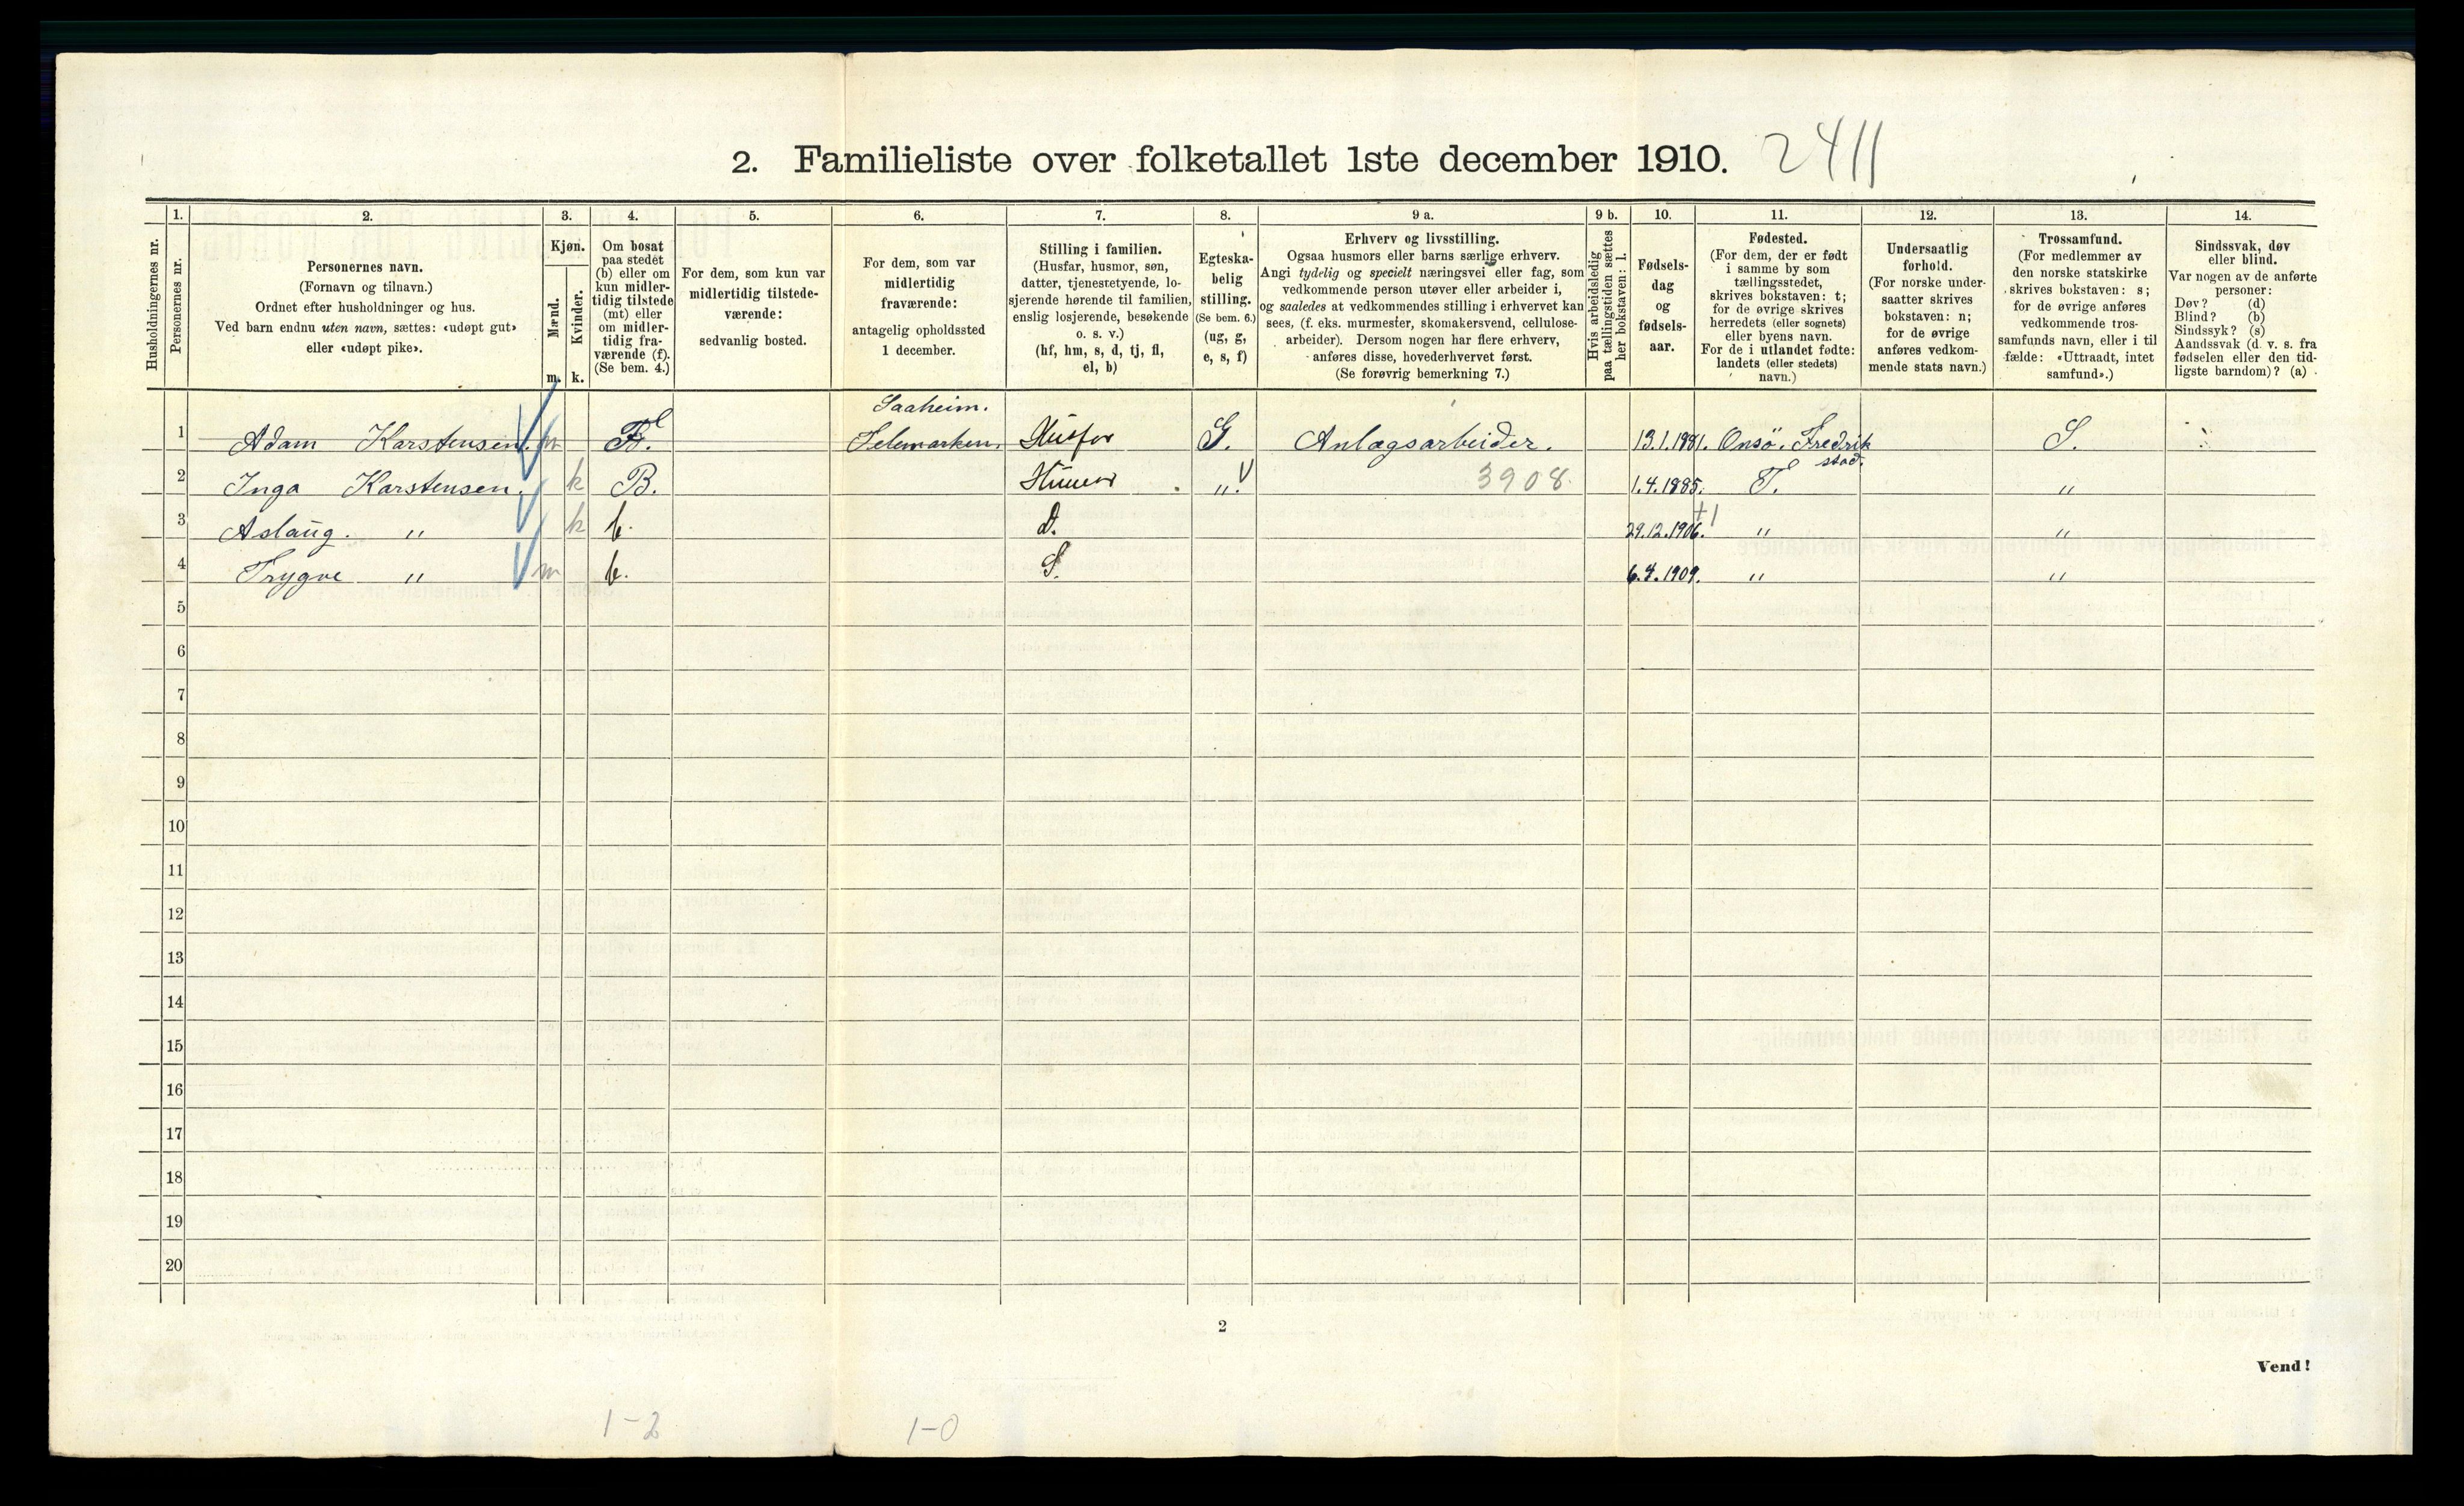 2. Familieliste over folketallet 1ste december 1910. 2411
Husholdningernes nr.
1.
Personernes nr.
2.
Personernes navn.
(Fornavn og tilnavn.)
Ordnet efter husholdninger og hus.
Ved barn endnu uten navn, sættes: «udøpt gut»
eller «udøpt pike».
3.
Kjøn.
Mænd.
Kvinder.
m. k.
4.
Om bosat
paa stedet
(b) eller om
kun midler-
tidig tilstede
(mt) eller
om midler-
tidig fra-
værende (f).
(Se bem. 4.)
5.
For dem, som kun var
midlertidig tilstede-
værende:
sedvanlig bosted.
6.
For dem, som var
midlertidig
fraværende:
antagelig opholdssted
1 december.
7.
Stilling i familien.
(Husfar, husmor, søn,
datter, tjenestetyende, lo-
sjerende hørende til familien,
enslig losjerende, besøkende
o. s. v.)
(hf, hm, s, d, tj, fl,
el, b)
8.
Egteska-
belig
stilling.
(Se bem. 6.)
(ug, g,
e, s, f)
9 a.
Erhverv og livsstilling.
Ogsaa husmors eller barns særlige erhverv.
Angi tydelig og specielt næringsvei eller fag, som
vedkommende person utøver eller arbeider i,
og saaledes at vedkommendes stilling i erhvervet kan
sees, (f. eks. murmester, skomakersvend, cellulose-
arbeider). Dersom nogen har flere erhverv,
anføres disse, hovederhvervet først.
(Se forøvrig bemerkning 7.)
9 b.
Hvis arbeidsledig
paa tællingstiden sættes
her bokstaven: l.
10.
Fødsels-
dag
og
fødsels-
aar.
11.
Fødested.
(For dem, der er født
i samme by som
tællingsstedet,
skrives bokstaven: t;
for de øvrige skrives
herredets (eller sognets)
eller byens navn.
For de i utlandet fødte:
landets (eller stedets)
navn.)
12.
Undersaatlig
forhold.
(For norske under-
saatter skrives
bokstaven: n;
for de øvrige
anføres vedkom-
mende stats navn.)
13.
Trossamfund.
(For medlemmer av
den norske statskirke
skrives bokstaven: s;
for de øvrige anføres
vedkommende tros-
samfunds navn, eller i til-
fælde: «Uttraadt, intet
samfund».)
14.
Sindssvak, døv
eller blind.
Var nogen av de anførte
personer:
Døv? (d)
Blind? (b)
Sindssyk? (s)
Aandssvak (d. v. s. fra
fødselen eller den tid-
ligste barndom)? (a)
Saaheim.
1 Adam Karstensen. m F. Telemarken. Husfar G. Anlægsarbeider. 13.1.1881. Onsö. Fredrik
stad.
2 Inga Karstensen. k B. Husmor „ 3908. 1.4.1885. T. „
3 Aslaug. „ k b. d. 29.12.1906. +1 „ „
4 Trygve „ m b. S. 6.4.1909. „ „
5
6
7
8
9
10
11
12
13
14
15
16
17
18
19
20
2
Vend!
1-2 1-0